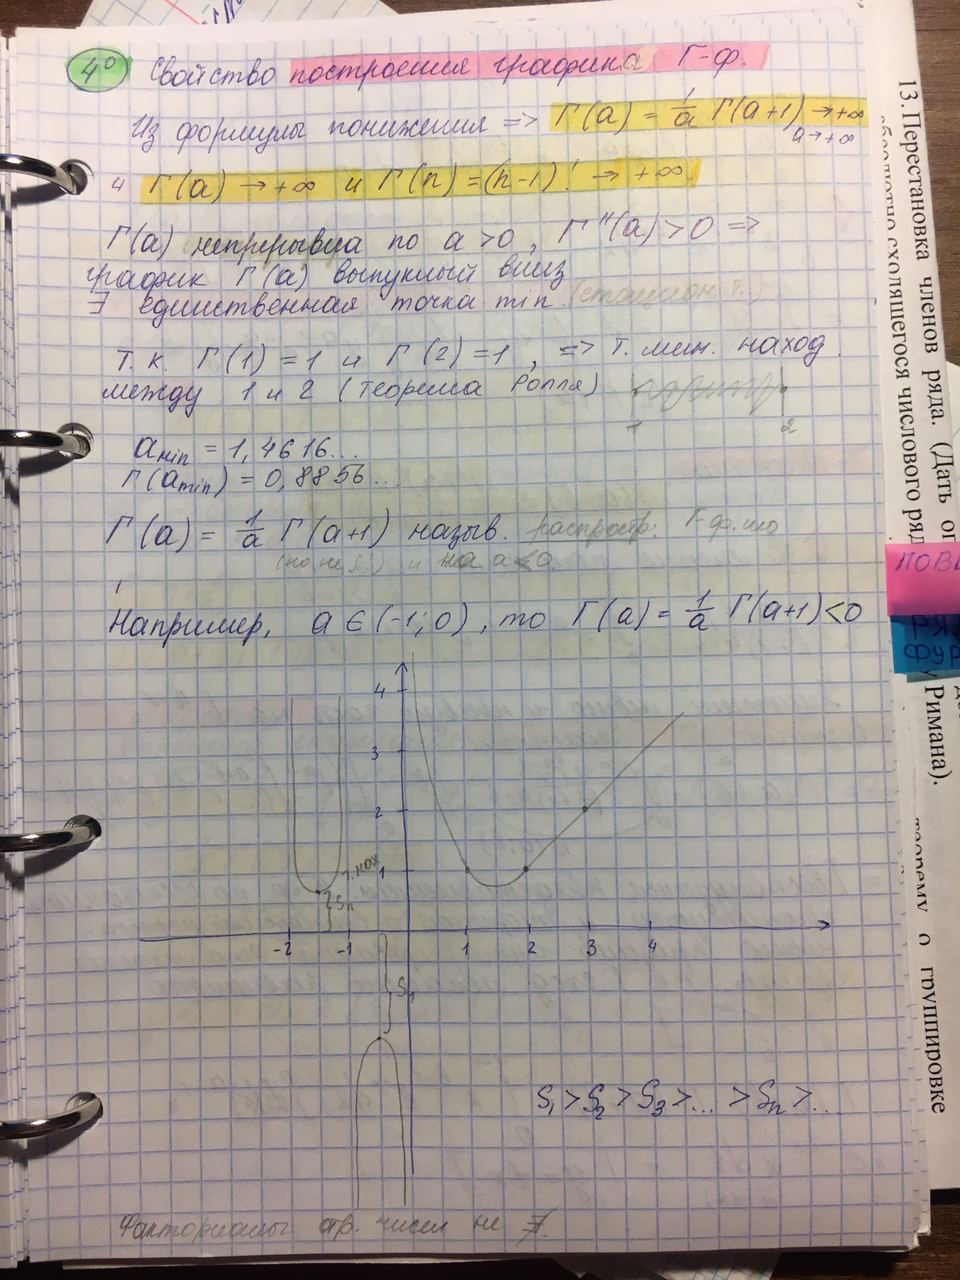 4⁰ Свойство построения графика Г-ф.
Из формулы понижения => Г(a) = 1/a Г(a+1) → +∞
a → +∞
и Г(a) → +∞ и Г(n) = (n-1)! → +∞
Г(a) непрерывна по a > 0, Г''(a) > 0 =>
график Г(a) выпуклый вниз
∃ единственная точка min (стацион. т.)
т.к. Г(1) = 1 и Г(2) = 1, => т. мин. наход.
между 1 и 2 (теорема Ролля)
1 2
a min = 1,4616...
Г(a min) = 0,8856...
Г(a) = 1/a Г(a+1) назыв. распростр. Г-ф.
и на a < 0.
Например, a ∈ (-1; 0), то Г(a) = 1/a Г(a+1) < 0
4
3
2
1
-2 -1 1 2 3 4
S₁
S₁ > S₂ > S₃ > ... > Sₙ > ...
Факториалы отр. чисел не ∃.
13. Перестановка членов ряда. (Дать
сходящегося числового ряд
Римана).
теорему о группировке
ПОВ
РЯ
ФУР